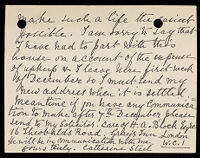 make such a life the easiest
possible. I am sorry to say that
I have had to part with this
house on account of the expense
of upkeep & I leave here first week
of December so I must send my
new address when it is settled
meantime if you have any Communica-
tion to make after 7th December please
send to my Solicitor Block Esqre
16 Theobalds Road Grays Inn London
He will be in communication with me W.C.1
Yours truly Catherine